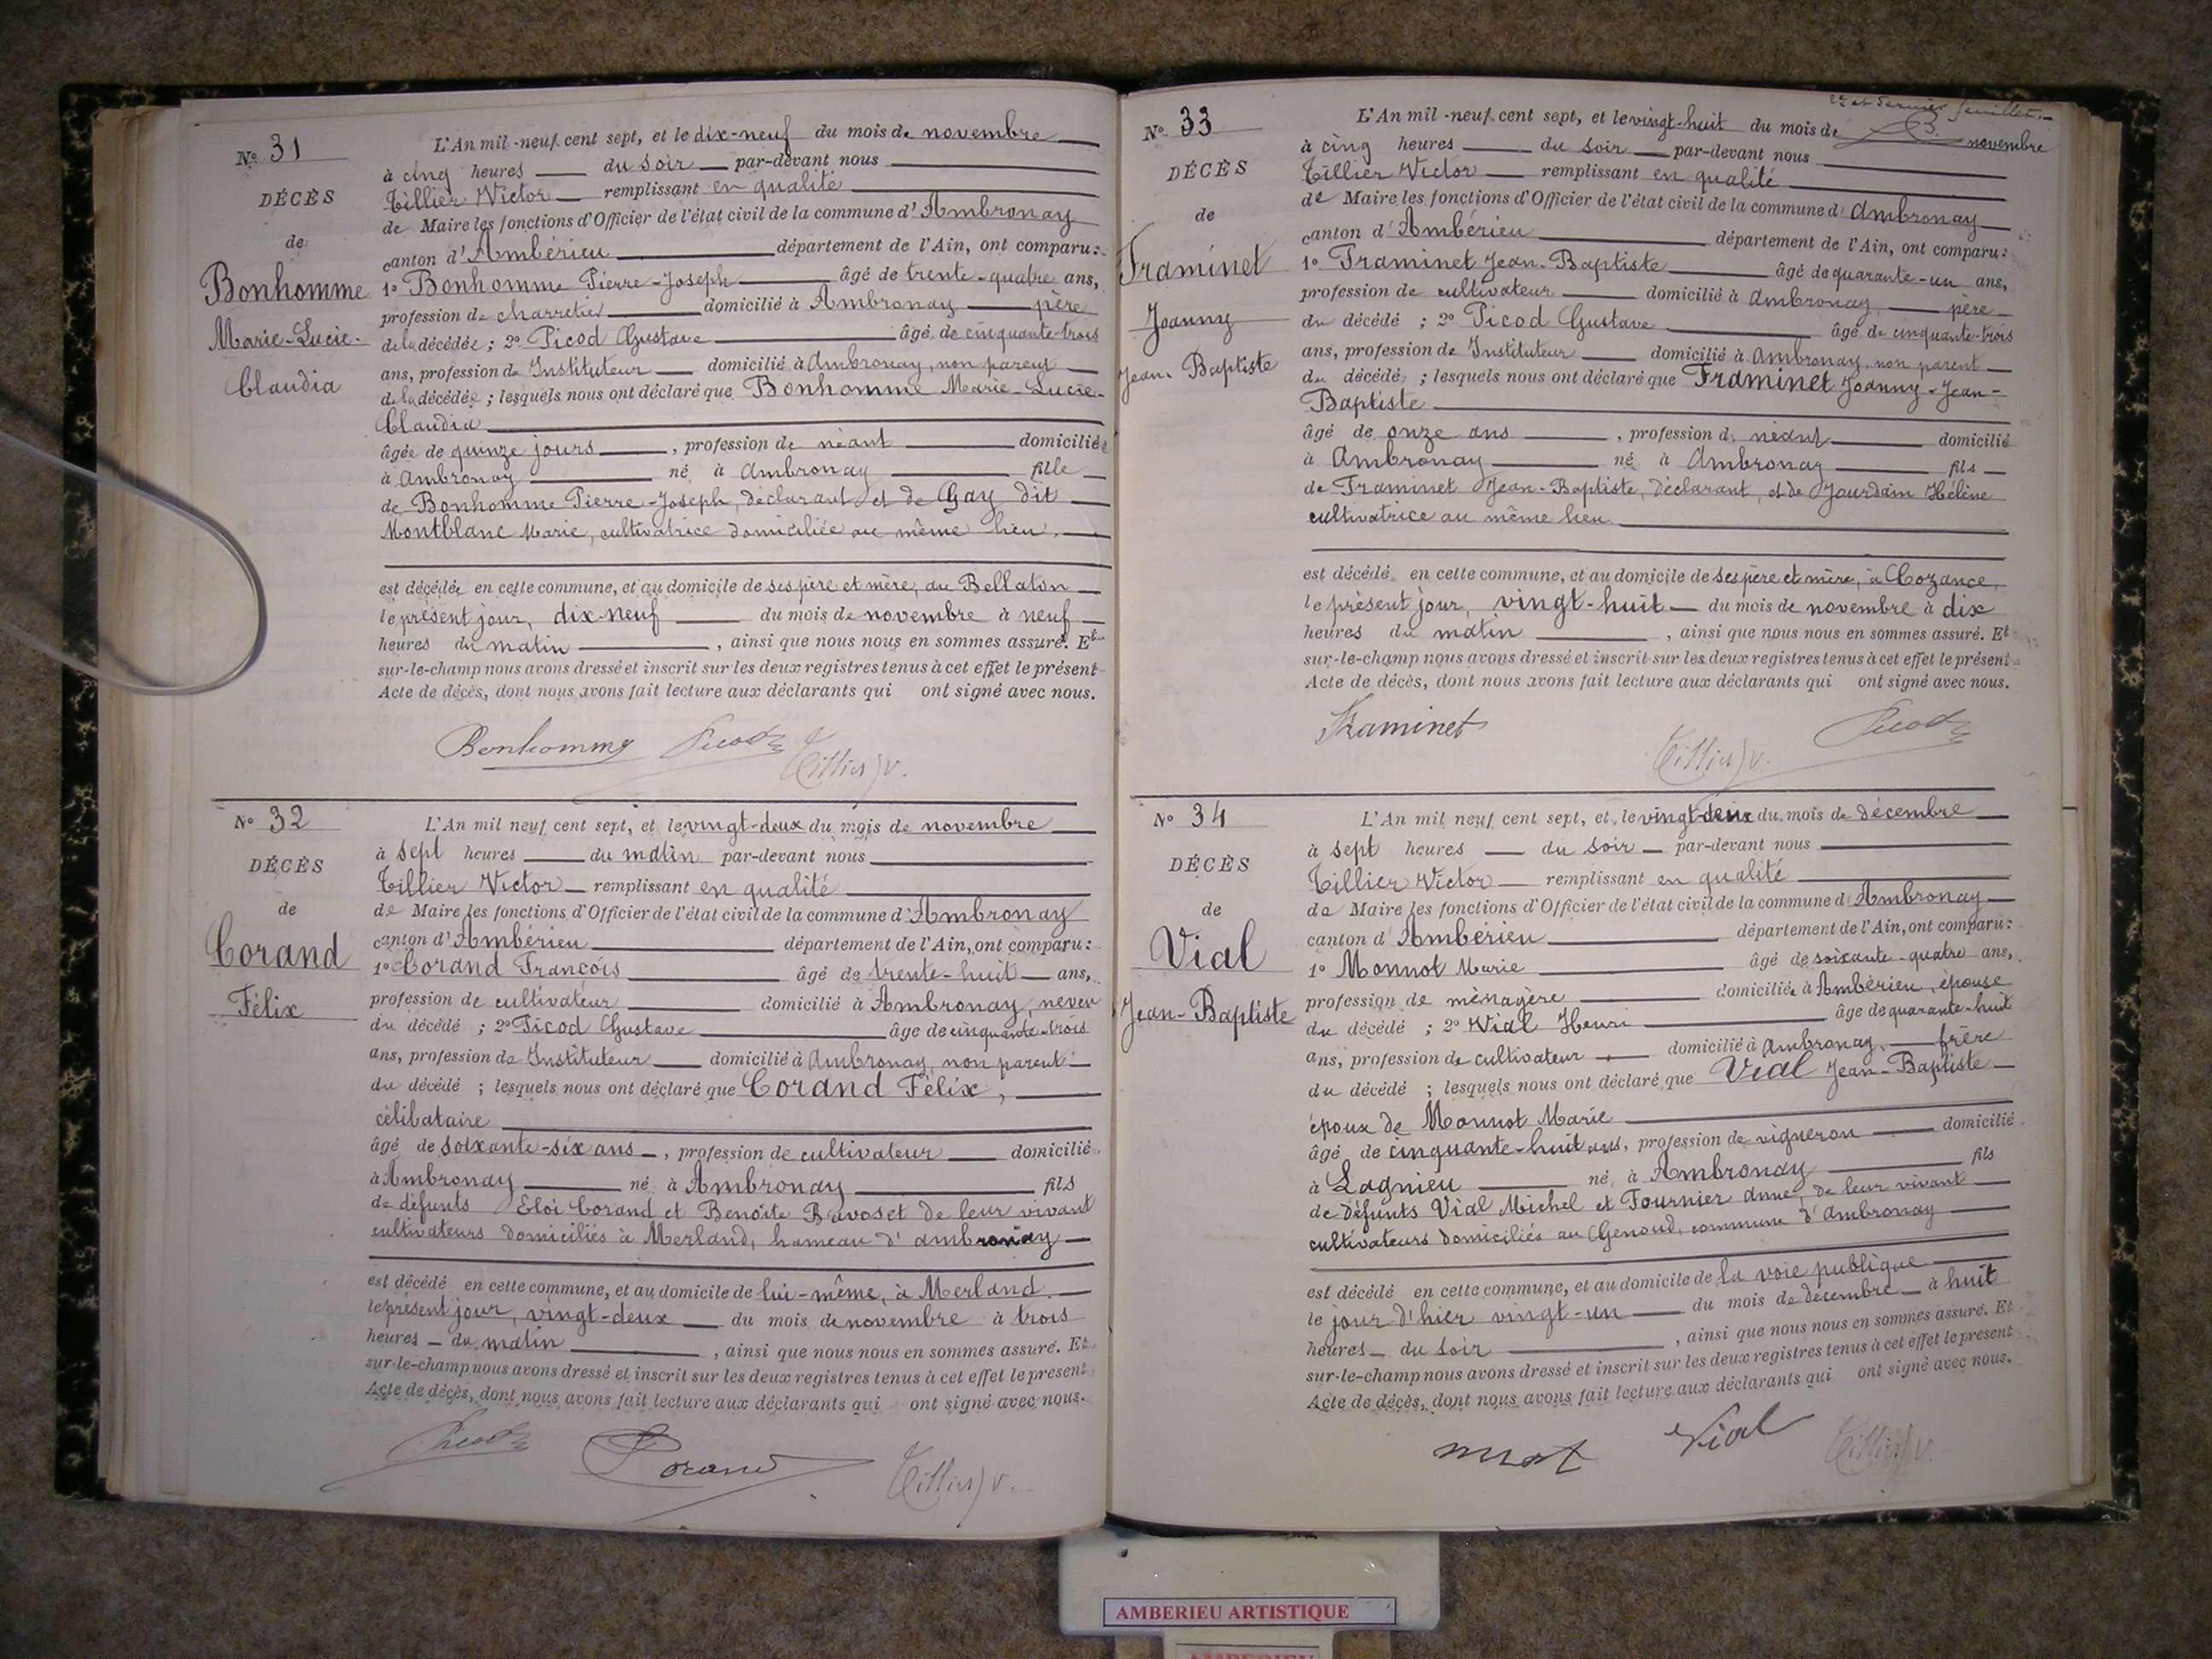 N° 31
DÉCÈS
de
Bonhomme
Marie-Lucie-
Claudia
L'An mil-neuf cent sept, et le dix-neuf du mois de novembre
à cinq heures du soir par-devant nous
Tillier Victor remplissant en qualité
de Maire les fonctions d'Officier de l'état civil de la commune d'Ambronay
canton d'Ambérieu département de l'Ain, ont comparu:
1° Bonhomme Pierre-Joseph âgé de trente-quatre ans,
profession de charretier domicilié à Ambronay père
de la décédée; 2° Picod Gustave âgé de cinquante-trois
ans, profession de Instituteur domicilié à Ambronay, non parent
de la décédée; lesquels nous ont déclaré que Bonhomme Marie-Lucie-
Claudia
âgée de quinze jours, profession de néant domiciliée
à Ambronay né à Ambronay fille
de Bonhomme Pierre-Joseph, déclarant et de Gay dit
Montblanc Marie, cultivatrice domiciliée au même lieu.
est décédée en cette commune, et au domicile de ses père et mère, au Bellaton
le présent jour, dix-neuf du mois de novembre à neuf
heures du matin, ainsi que nous nous en sommes assuré. Et
sur-le-champ nous avons dressé et inscrit sur les deux registres tenus à cet effet le présent
Acte de décès, dont nous avons fait lecture aux déclarants qui ont signé avec nous.
Bonhomme Picod Tillier V.
N° 32
DÉCÈS
de
Corand
Félix
L'An mil neuf cent sept, et le vingt-deux du mois de novembre
à sept heures du matin par-devant nous
Tillier Victor remplissant en qualité
de Maire les fonctions d'Officier de l'état civil de la commune d'Ambronay
canton d'Ambérieu département de l'Ain, ont comparu:
1° Corand François âgé de trente-huit ans,
profession de cultivateur domicilié à Ambronay, neveu
du décédé; 2° Picod Gustave âgé de cinquante-trois
ans, profession de Instituteur domicilié à Ambronay, non parent
du décédé; lesquels nous ont déclaré que Corand Félix,
célibataire
âgé de soixante-six ans, profession de cultivateur domicilié
à Ambronay né à Ambronay fils
de défunts Eloi Corand et Benoite Bavoset de leur vivant
cultivateurs domiciliés à Merland, hameau d'Ambronay
est décédé en cette commune, et au domicile de lui-même, à Merland.
le présent jour, vingt-deux du mois de novembre à trois
heures du matin, ainsi que nous nous en sommes assuré. Et
sur-le-champ nous avons dressé et inscrit sur les deux registres tenus à cet effet le présent
Acte de décès, dont nous avons fait lecture aux déclarants qui ont signé avec nous.
Picod Corand Tillier V.
et dernier feuillet.
N° 33
DÉCÈS
de
Framinet
Joanny
Jean-Baptiste
L'An mil-neuf cent sept, et le vingt-huit du mois de novembre
à cinq heures du soir par-devant nous
Tillier Victor remplissant en qualité
de Maire les fonctions d'Officier de l'état civil de la commune d'Ambronay
canton d'Ambérieu département de l'Ain, ont comparu:
1° Framinet Jean-Baptiste âgé de quarante-un ans,
profession de cultivateur domicilié à Ambronay, père
du décédé; 2° Picod Gustave âgé de cinquante-trois
ans, profession de Instituteur domicilié à Ambronay, non parent
du décédé; lesquels nous ont déclaré que Framinet Joanny-Jean-
Baptiste
âgé de onze ans, profession de néant domicilié
à Ambronay né à Ambronay fils
de Framinet Jean-Baptiste, déclarant, et de Jourdain Hélène
cultivatrice au même lieu
est décédé en cette commune, et au domicile de ses père et mère, à Cozance,
le présent jour, vingt-huit du mois de novembre à dix
heures du matin, ainsi que nous nous en sommes assuré. Et
sur-le-champ nous avons dressé et inscrit sur les deux registres tenus à cet effet le présent
Acte de décès, dont nous avons fait lecture aux déclarants qui ont signé avec nous.
Framinet Tillier V. Picod
N° 34
DÉCÈS
de
Vial
Jean-Baptiste
L'An mil neuf cent sept, et le vingt-deux du mois de décembre
à sept heures du soir par-devant nous
Tillier Victor remplissant en qualité
de Maire les fonctions d'Officier de l'état civil de la commune d'Ambronay
canton d'Ambérieu département de l'Ain, ont comparu:
1° Monnot Marie âgé de soixante-quatre ans,
profession de ménagère domiciliée à Ambérieu, épouse
du décédé; 2° Vial Henri âgé de quarante-huit
ans, profession de cultivateur domicilié à Ambronay, frère
du décédé; lesquels nous ont déclaré que Vial Jean-Baptiste
époux de Monnot Marie
âgé de cinquante-huit ans, profession de vigneron domicilié
à Lagnieu né à Ambronay fils
de défunts Vial Michel et Fournier Anne, de leur vivant
cultivateurs domiciliés au Genoud, commune d'Ambronay
est décédé en cette commune, et au domicile de la voie publique
le jour d'hier vingt-un du mois de décembre à huit
heures du soir, ainsi que nous nous en sommes assuré. Et
sur-le-champ nous avons dressé et inscrit sur les deux registres tenus à cet effet le présent
Acte de décès, dont nous avons fait lecture aux déclarants qui ont signé avec nous.
Vial Tillier V.
AMBERIEU ARTISTIQUE
AMBERIEU